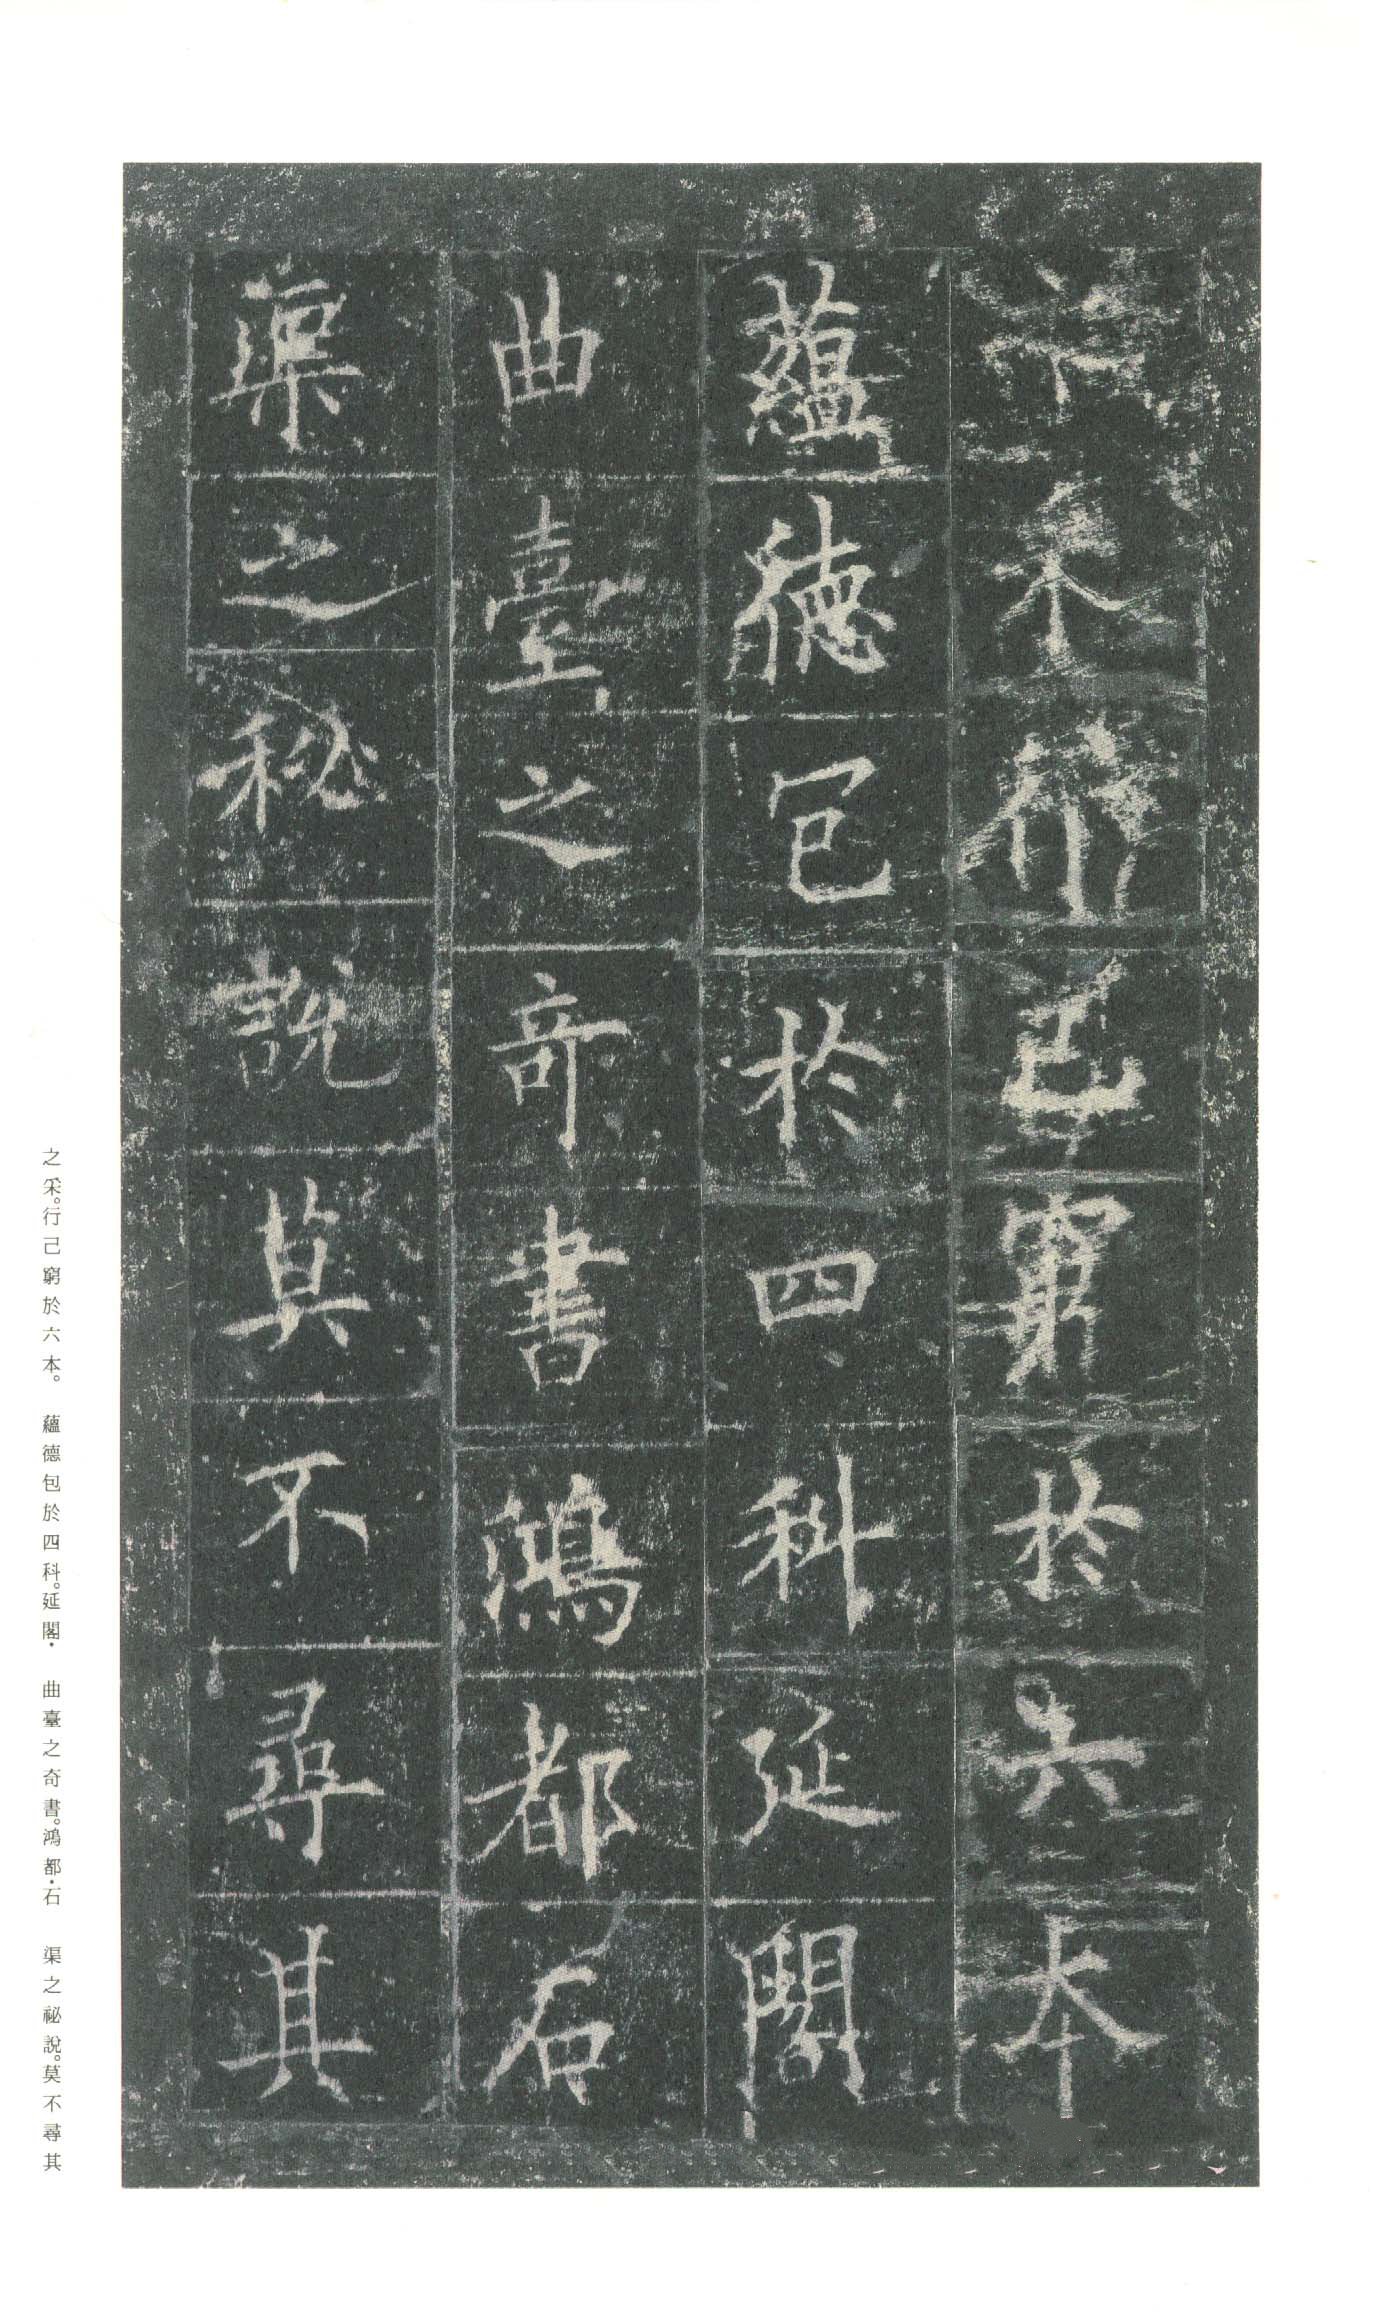 之采行己窮於六本
蘊德包於四科延閣
曲臺之奇書鴻都石
渠之秘說莫不尋其
之采。行己窮於六本。 蘊德包於四科。延閣・ 曲臺之奇書。鴻都・石 渠之祕說。莫不尋其